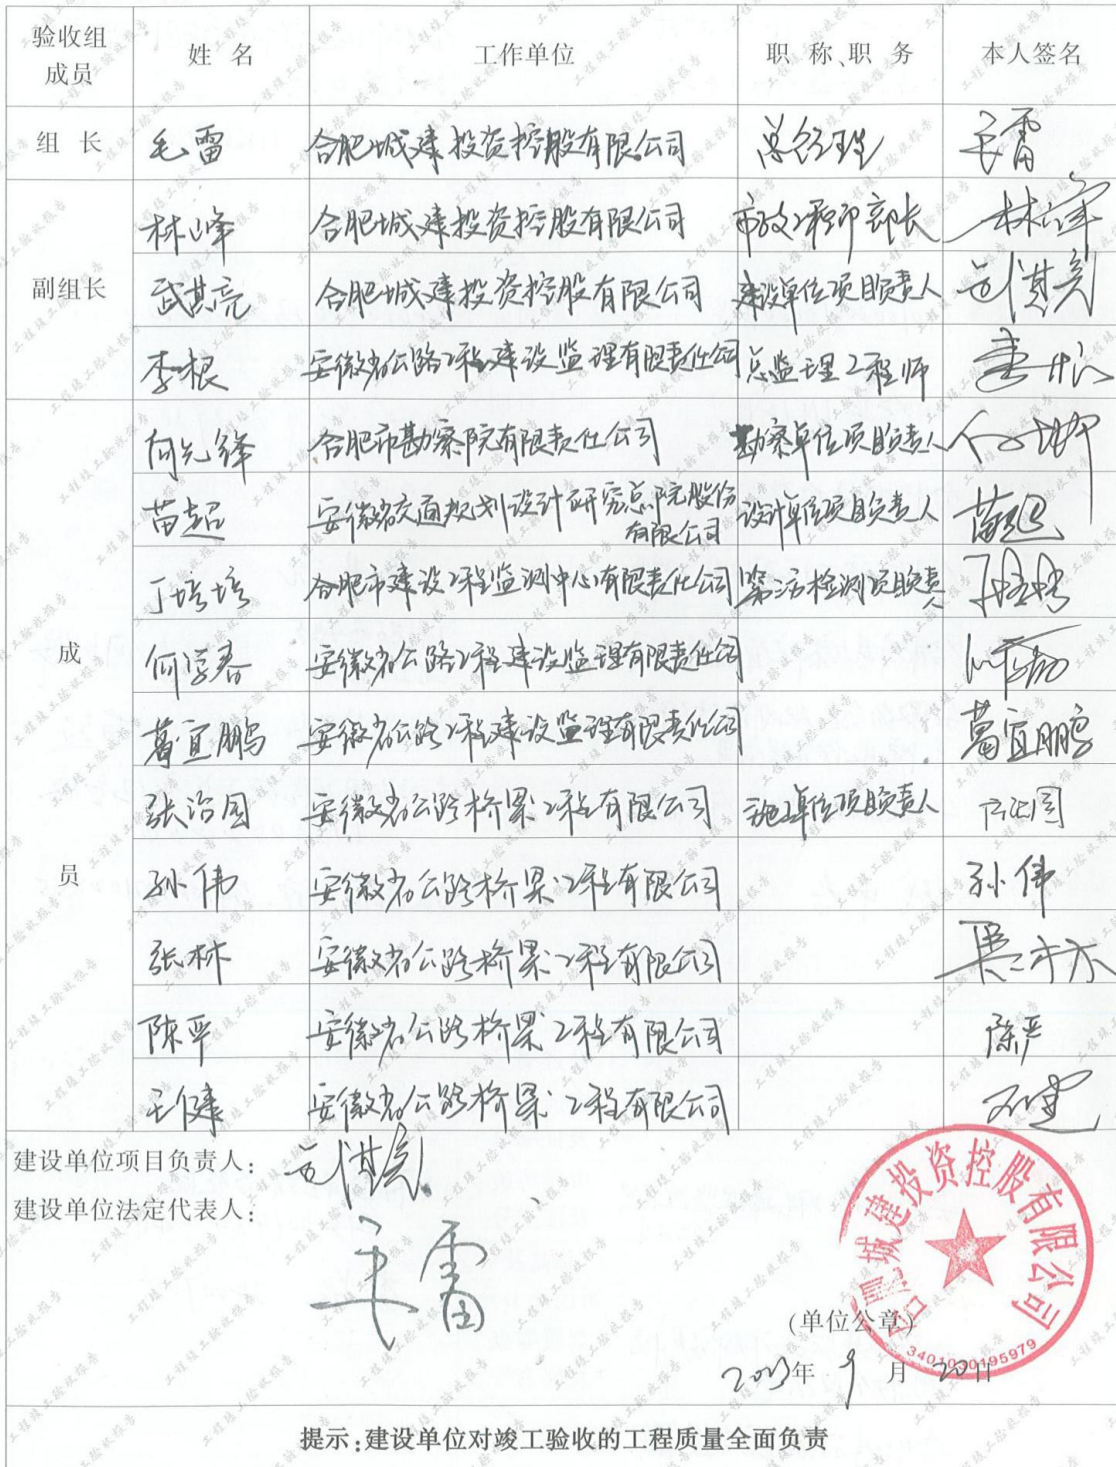 验收组成员 姓 名 工作单位 职 称、职 务 本人签名
组 长 毛雷 合肥城建投资控股有限公司 总经理 毛雷
副组长
林峰 合肥城建投资控股有限公司 市政工程部部长 林峰
武其亮 合肥城建投资控股有限公司 建设单位项目负责人 武其亮
李根 安徽省公路工程建设监理有限责任公司 总监理工程师 李根
成员
何先锋 合肥市勘察院有限责任公司 勘察单位项目负责人
苗超 安徽省交通规划设计研究总院股份有限公司 设计单位项目负责人 苗超
丁培培 合肥市建设工程监测中心有限责任公司 第三方检测项目负责人
何学春 安徽省公路工程建设监理有限责任公司
葛宜鹏 安徽省公路工程建设监理有限责任公司 葛宜鹏
张治国 安徽省公路桥梁工程有限公司 施工单位项目负责人
孙伟 安徽省公路桥梁工程有限公司 孙伟
张林 安徽省公路桥梁工程有限公司
陈平 安徽省公路桥梁工程有限公司
王健 安徽省公路桥梁工程有限公司 王健
建设单位项目负责人: 武其亮
建设单位法定代表人:
毛雷
合肥城建投资控股有限公司
(单位公章)
3401030195979
2023年 9 月 20日
提示:建设单位对竣工验收的工程质量全面负责
工程竣工验收报告